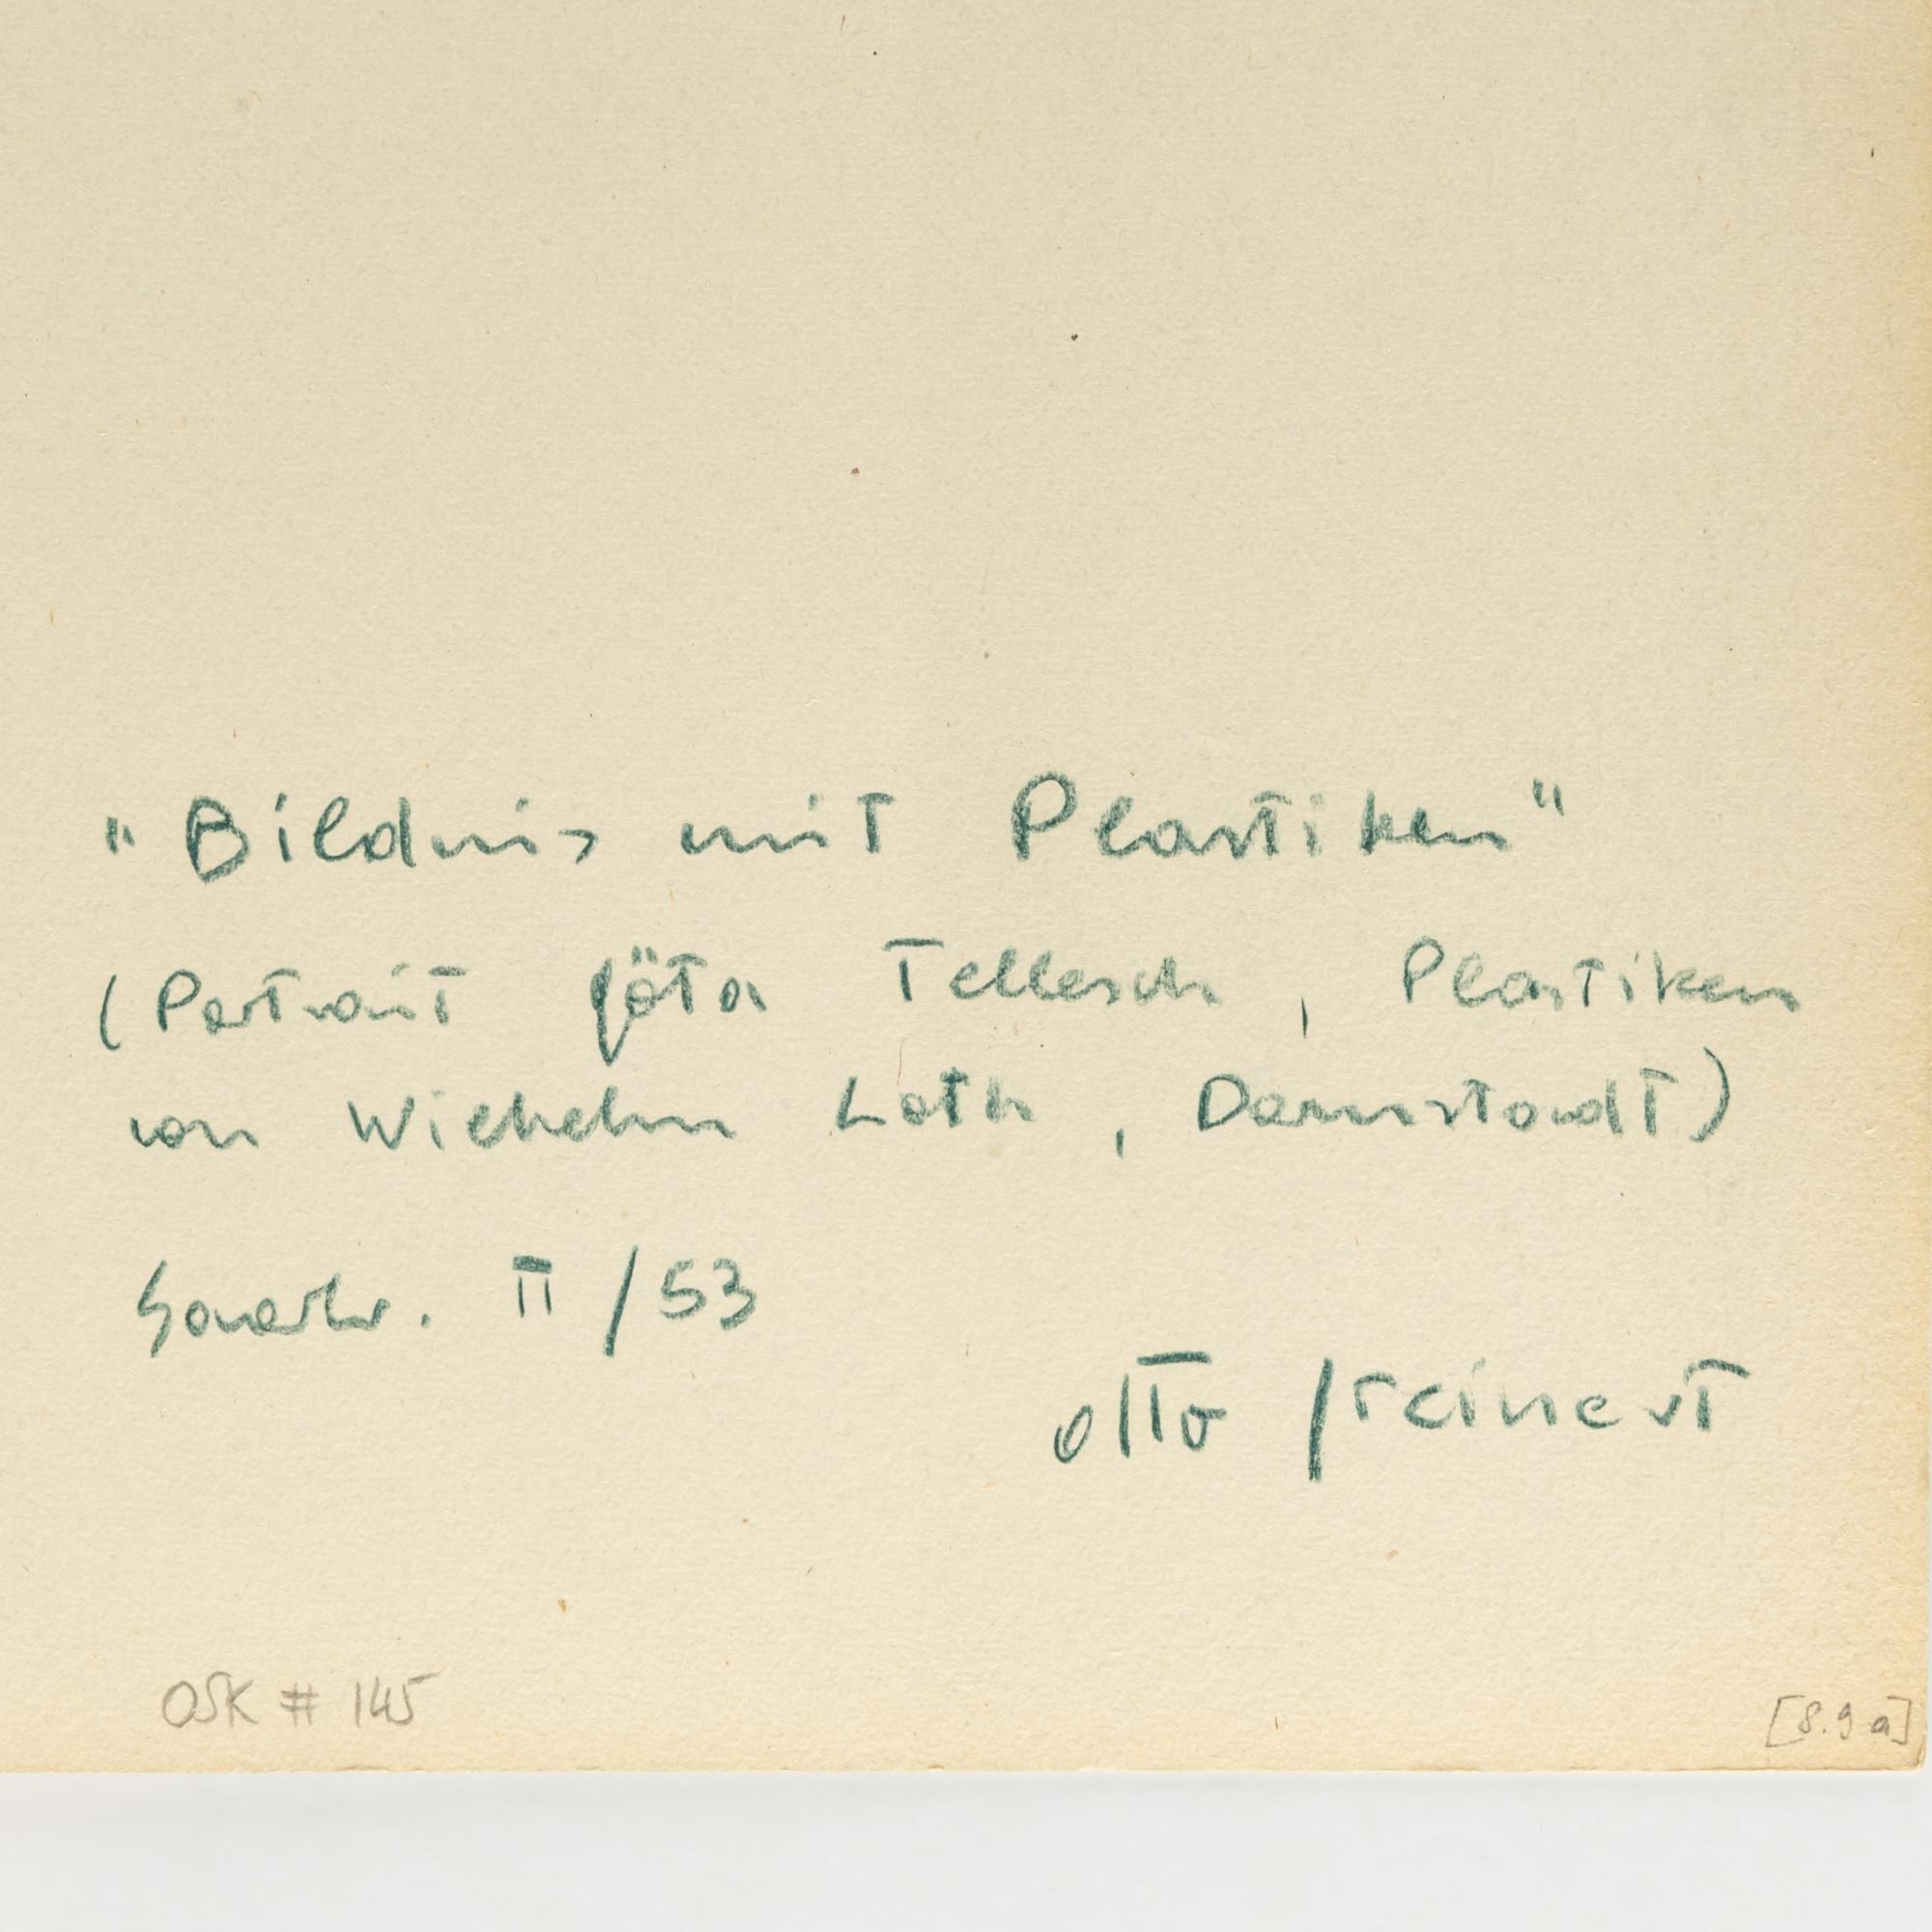 "Bildnis mit Plastiken"
(Portrait Göta Tellesch, Plastiken
von Wilhelm Loth, Darmstadt)
Saarbr. II/53
otto steinert
OSK # 145
[8.9a]